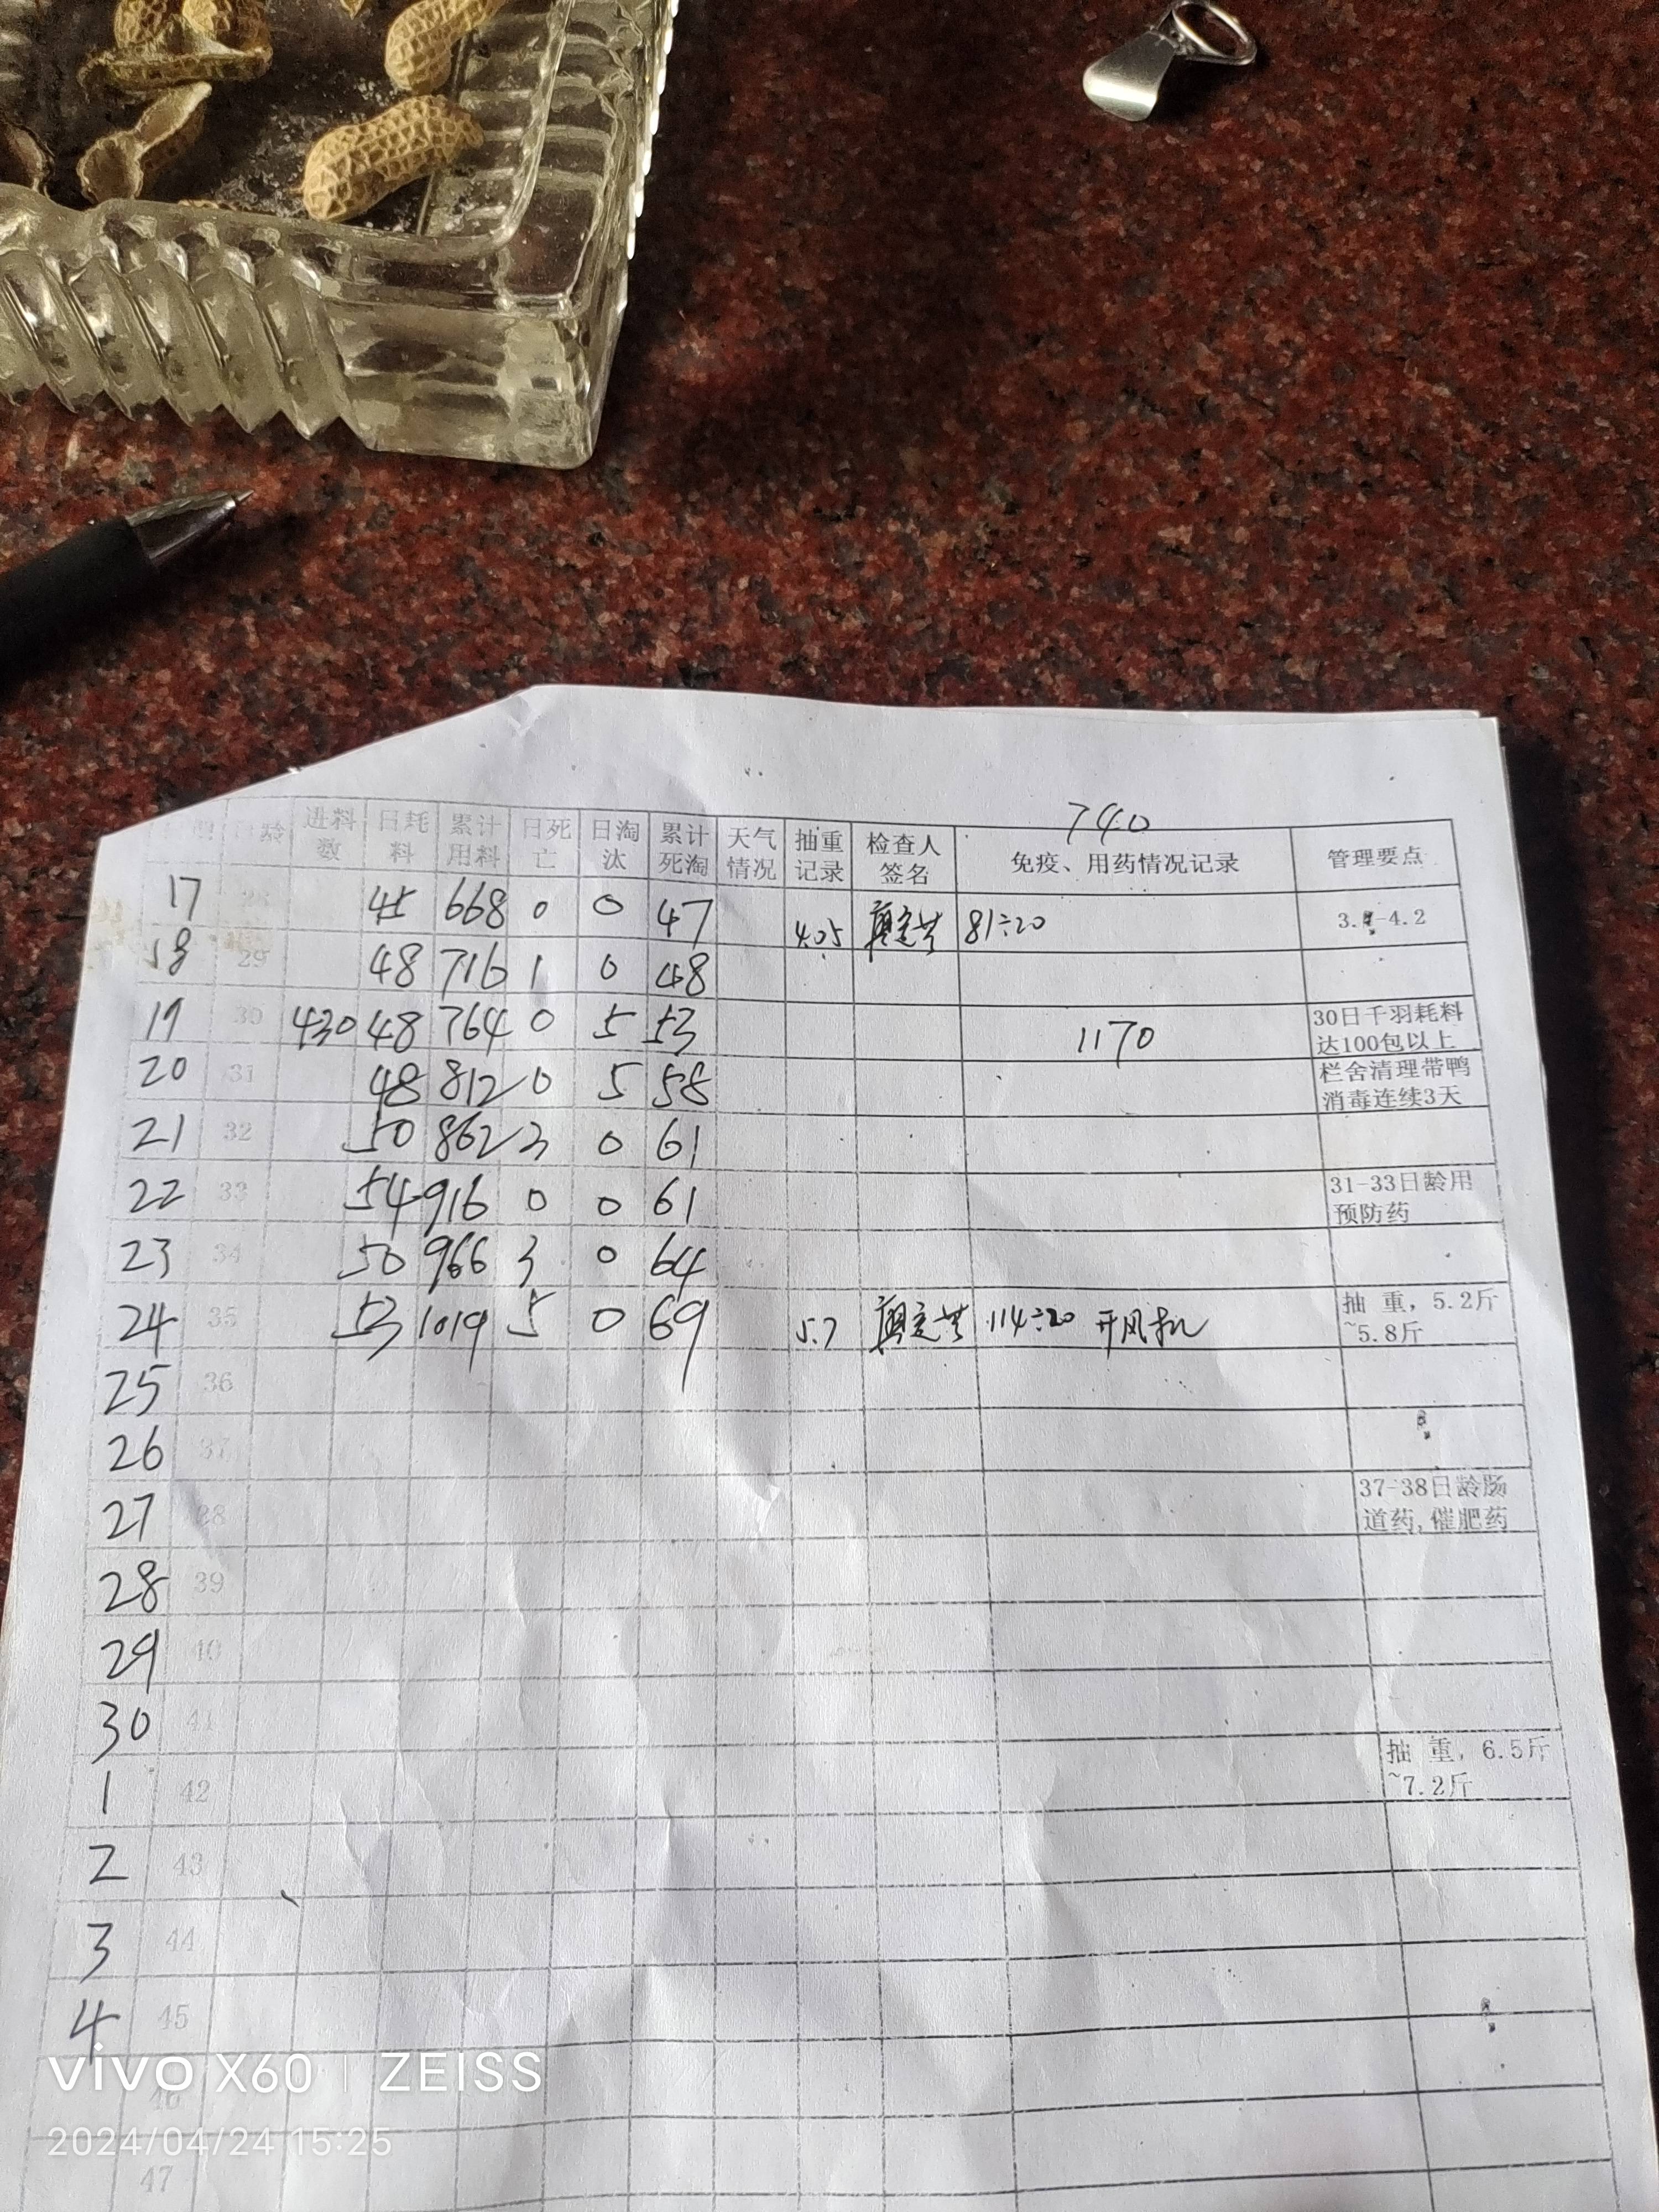 740
日龄 进料数 日耗料 累计用料 日死亡 日淘汰 累计死淘 天气情况 抽重记录 检查人签名 免疫、用药情况记录 管理要点
17 28 45 668 0 0 47 4.05 81÷20 3. -4.2
18 29 48 716 1 0 48
19 30 430 48 764 0 5 53 1170 30日千羽耗料达100包以上
20 31 48 812 0 5 58 栏舍清理带鸭消毒连续3天
21 32 50 862 3 0 61
22 33 54 916 0 0 61 31-33日龄用预防药
23 34 50 966 3 0 64
24 35 53 1019 5 0 69 5.7 114÷20 开风机 抽 重，5.2斤~5.8斤
25 36
26 37
27 38 37-38日龄肠道药,催肥药
28 39
29 40
30 41
1 42 抽 重，6.5斤~7.2斤
2 43
3 44
4 45
46
47
vivo X60 | ZEISS
2024/04/24 15:25